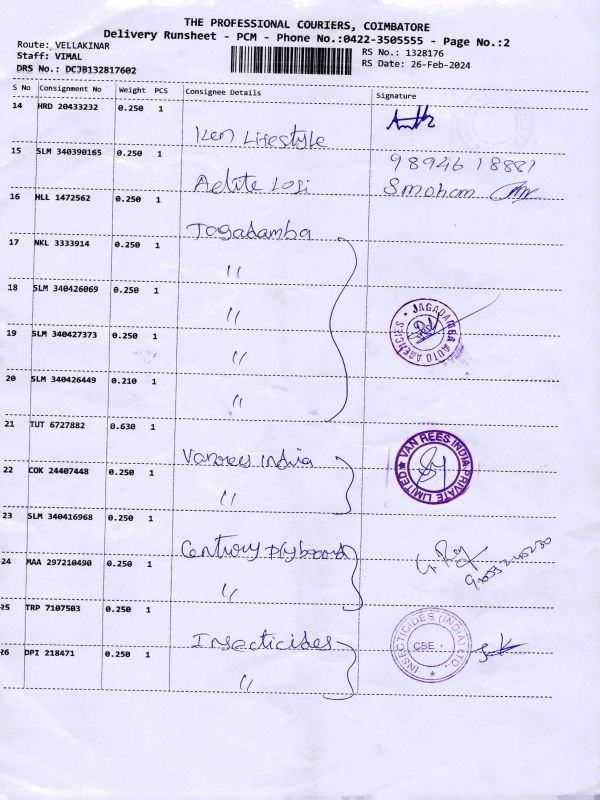 THE PROFESSIONAL COURIERS, COIMBATORE
Delivery Runsheet - PCM - Phone No.:0422-3505555 - Page No.:2
Route: VELLAKINAR
Staff: VIMAL
DRS No.: DCJB132817602
RS No.: 1328176
RS Date: 26-Feb-2024
S No Consignment No Weight PCS Consignee Details Signature
14 HRD 20433232 0.250 1
Ken Lifestyle
15 SLM 340390165 0.250 1
Aelite Logi
9894618881
Smoham
16 HLL 1472562 0.250 1
Jagadamba
17 NKL 3333914 0.250 1
"
18 SLM 340426069 0.250 1
"
JAGADAMBA AUTO AGENCIES
19 SLM 340427373 0.250 1
"
20 SLM 340426449 0.210 1
"
21 TUT 6727882 0.630 1
Vanrees India
VAN REES INDIA PRIVATE LIMITED
22 COK 24407448 0.250 1
"
23 SLM 340416968 0.250 1
Century Plyboard
24 MAA 297210490 0.250 1
"
25 TRP 7107503 0.250 1
Insecticides
INSECTICIDES (INDIA) LTD.
CBE
26 DPI 218471 0.250 1
"